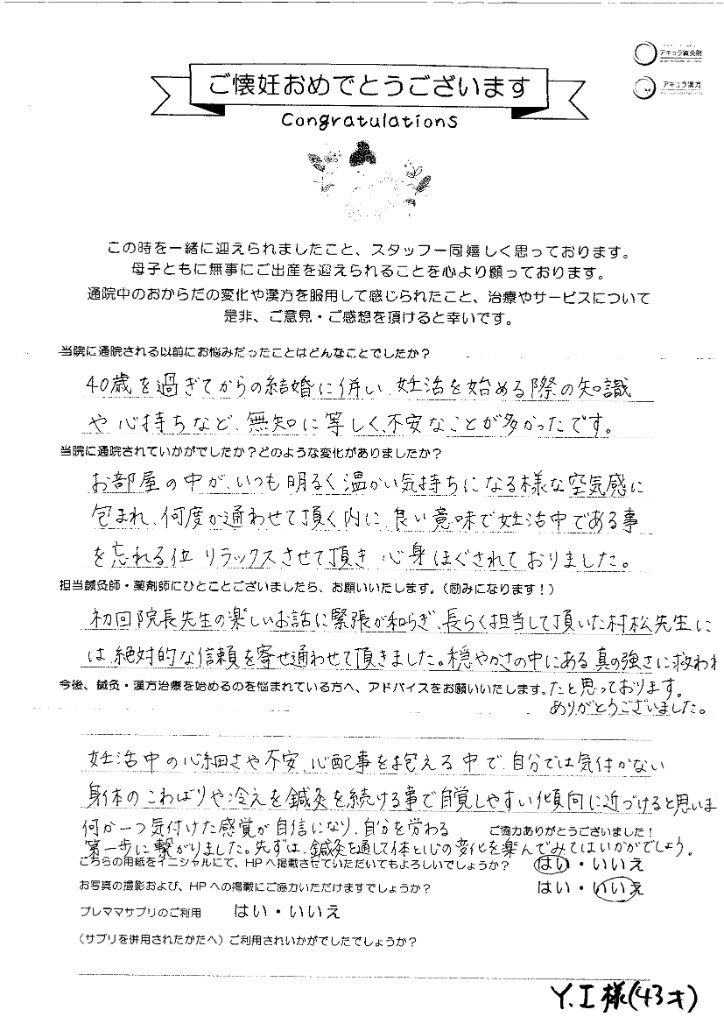 アキュラ鍼灸院
アキュラ漢方
ご懐妊おめでとうございます
Congratulations
この時を一緒に迎えられましたこと、スタッフ一同嬉しく思っております。
母子ともに無事にご出産を迎えられることを心より願っております。
通院中のおからだの変化や漢方を服用して感じられたこと、治療やサービスについて
是非、ご意見・ご感想を頂けると幸いです。
当院に通院される以前にお悩みだったことはどんなことでしたか？
40歳を過ぎてからの結婚に併い、妊活を始める際の知識
や心持ちなど、無知に等しく、不安なことが多かったです。
当院に通院されていかがでしたか？どのような変化がありましたか？
お部屋の中が、いつも明るく温かい気持ちになる様な空気感に
包まれ、何度か通わせて頂く内に、良い意味で妊活中である事
を忘れる位 リラックスさせて頂き 心身ほぐされておりました。
担当鍼灸師・薬剤師にひとことございましたら、お願いいたします。（励みになります！）
初回院長先生の楽しいお話に緊張が和らぎ、長らく担当して頂いた村松先生に
は、絶対的な信頼を寄せ通わせて頂きました。穏やかさの中にある真の強さに救われ
今後、鍼灸・漢方治療を始めるのを悩まれている方へ、アドバイスをお願いいたします。たと思っております。
ありがとうございました。
妊活中の心細さや不安、心配事を抱える中で、自分では気付かない
身体のこわばりや冷えを鍼灸を続ける事で自覚しやすい傾向に近づけると思いま
何か一つ気付けた感覚が自信になり、自分を労わる
ご協力ありがとうございました！
第一歩に繋がりました。先ずは、鍼灸を通して体と心の変化を楽んでみてはいかがでしょう。
こちらの用紙をイニシャルにて、HPへ掲載させていただいてもよろしいでしょうか？ はい・いいえ
お写真の撮影および、HPへの掲載にご協力いただけますでしょうか？ はい・いいえ
プレママサプリのご利用 はい・いいえ
（サプリを併用されたかたへ）ご利用されいかがでしたでしょうか？
Y.I様(43才)